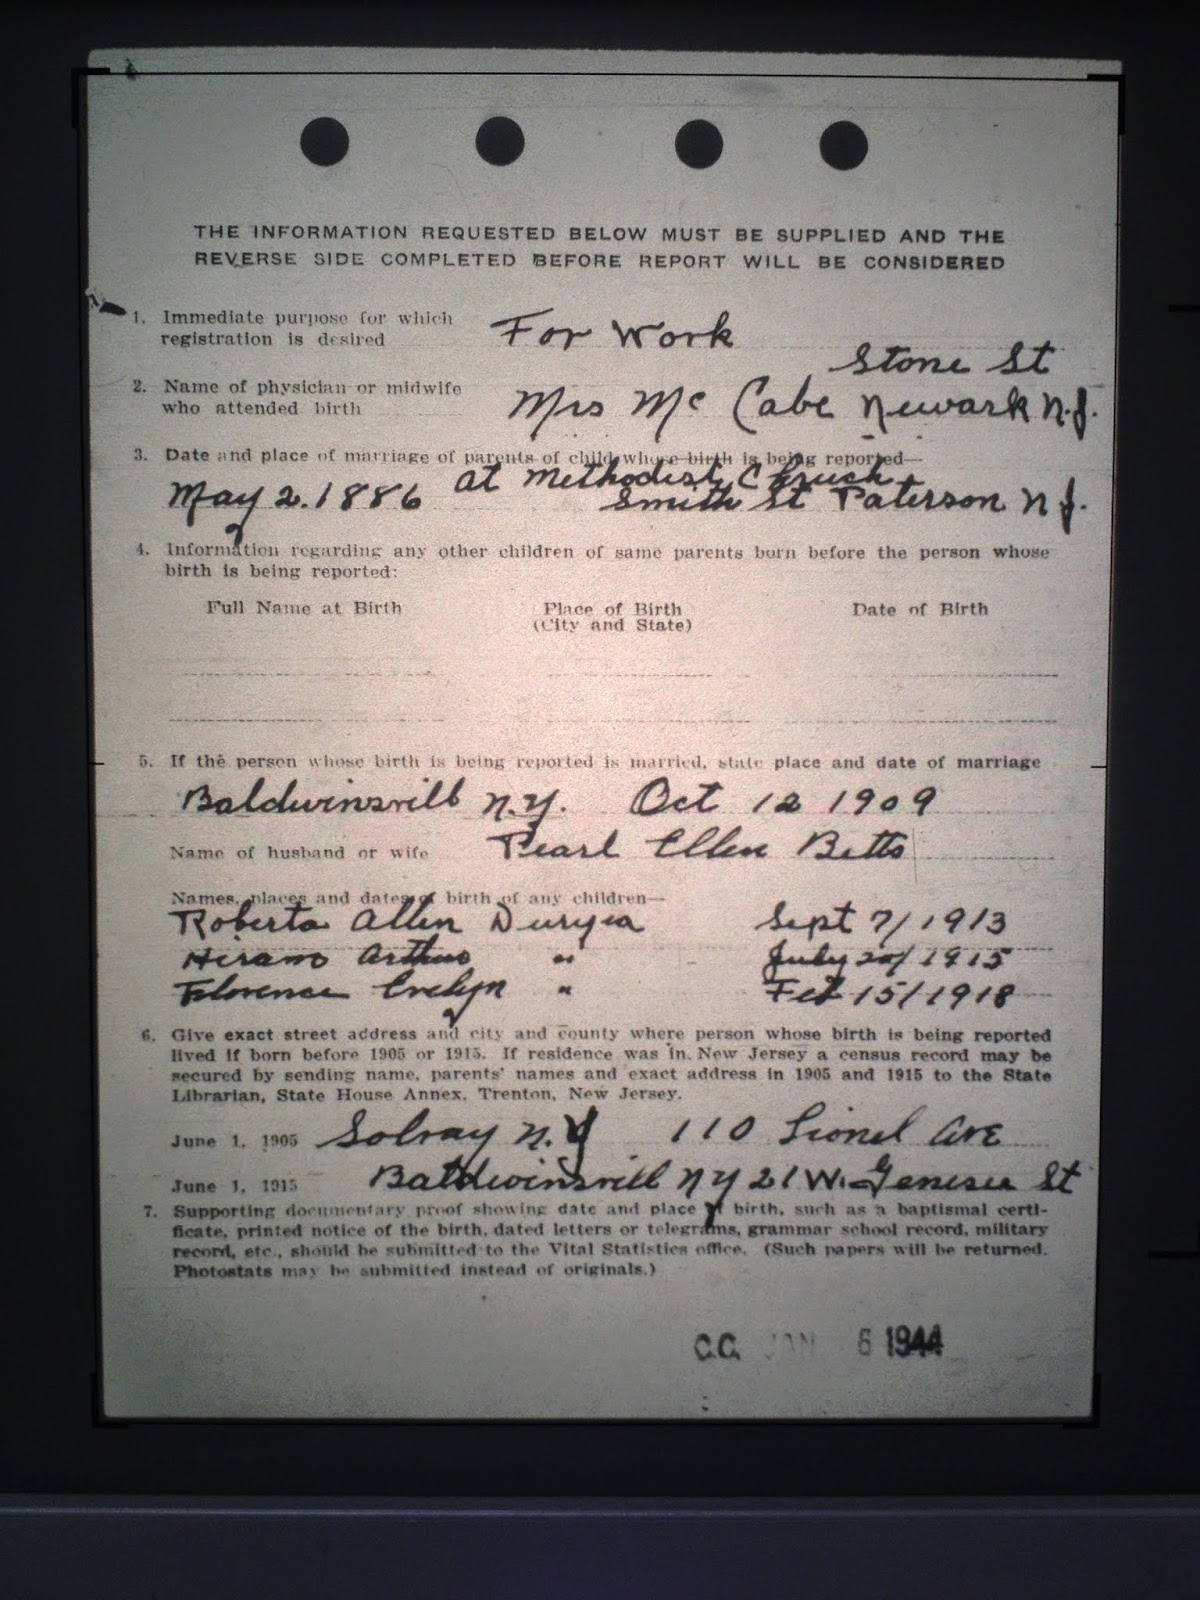 THE INFORMATION REQUESTED BELOW MUST BE SUPPLIED AND THE
REVERSE SIDE COMPLETED BEFORE REPORT WILL BE CONSIDERED
1. Immediate purpose for which
registration is desired
For Work
Stone St
2. Name of physician or midwife
who attended birth
Mrs Mc Cabe Newark N.J.
3. Date and place of marriage of parents of child whose birth is being reported—
May 2. 1886 at Methodist Chruch
Smith St Paterson N J.
4. Information regarding any other children of same parents born before the person whose
birth is being reported:
Full Name at Birth Place of Birth Date of Birth
(City and State)
5. If the person whose birth is being reported is married, state place and date of marriage
Baldwinsvill N.Y. Oct 12 1909
Name of husband or wife Pearl Ellen Betts
Names, places and dates of birth of any children—
Roberta Allen Duryea Sept 7/1913
Hiram Arthur " July 20/1915
Florence Evelyn " Feb 15/1918
6. Give exact street address and city and county where person whose birth is being reported
lived if born before 1905 or 1915. If residence was in New Jersey a census record may be
secured by sending name, parents' names and exact address in 1905 and 1915 to the State
Librarian, State House Annex, Trenton, New Jersey.
June 1, 1905 Solvay N.Y 110 Lionel Ave
June 1, 1915 Baldwinsvill N Y 21 W. Genesee St
7. Supporting documentary proof showing date and place of birth, such as a baptismal certi-
ficate, printed notice of the birth, dated letters or telegrams, grammar school record, military
record, etc., should be submitted to the Vital Statistics office. (Such papers will be returned.
Photostats may be submitted instead of originals.)
C.C. JAN 6 1944